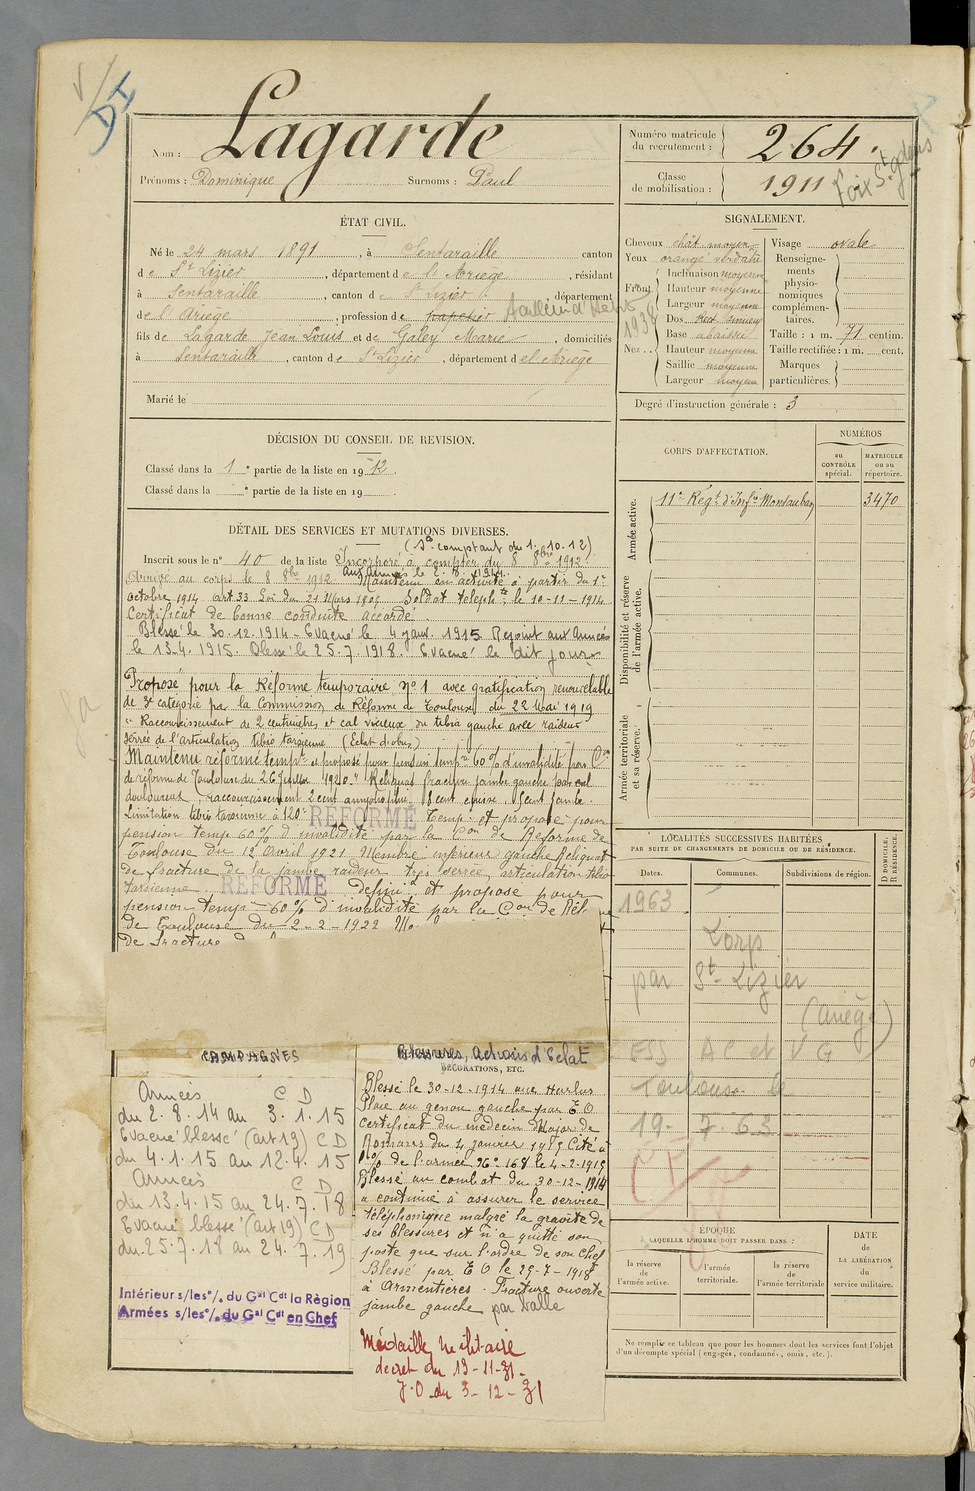 Lagarde
Nom :
Prénoms : Dominique Surnoms : Paul
Numéro matricule du recrutement : 264.
Classe de mobilisation : 1911
Foix St Gdens
ÉTAT CIVIL.
Né le 24 mars 1891, à Sentaraille canton
de St Lizier, département de l'Ariège, résidant
à Sentaraille, canton de St Lizier, département
de l'Ariège, profession de papetier
1938
fils de Lagarde Jean Louis et de Galey Marie, domiciliés
à Sentaraille, canton de St Lizier, département de l'Ariège
Marié le
SIGNALEMENT.
Cheveux chât moyen
Yeux orangé verdatre
Front
Inclinaison moyenne
Hauteur moyenne
Largeur moyenne
Nez
Dos. Rect. sinueux
Base abaissée
Hauteur moyenne
Saillie moyenne
Largeur moyenne
Visage ovale
Renseignements physionomiques complémentaires.
Taille : 1 m. 71 centim.
Taille rectifiée : 1 m. cent.
Marques particulières.
Degré d'instruction générale : 3
DÉCISION DU CONSEIL DE REVISION.
Classé dans la 1e partie de la liste en 1912.
Classé dans la e partie de la liste en 19
CORPS D'AFFECTATION.
NUMÉROS
au CONTRÔLE spécial.
MATRICULE ou au répertoire.
Armée active.
11e Régt d'Infie Montauban 3470
Disponibilité et réserve de l'armée active.
Armée territoriale et sa réserve.
DÉTAIL DES SERVICES ET MUTATIONS DIVERSES.
(Sce comptant du 1.10.12)
Inscrit sous le n° 40 de la liste Incorporé à compter du 8 8bre 1912
aux armées le 2.8.1914
Arrivé au corps le 8 8bre 1912 Maintenu en activité à partir du 1er
Octobre 1914 art 33 Loi du 21 Mars 1905 Soldat téléphte le 10-11-1914
Certificat de bonne conduite accordé.
Blessé le 30.12.1914. Evacué le 4 janv. 1915 Rejoint aux Armées
le 13.4.1915. Blessé le 25.7.1918. Evacué le dit jour
Proposé pour la Réforme temporaire n° 1 avec gratification renouvelable
de 3e catégorie par la Commission de Réforme de Toulouse du 22 Mai 1919
" Raccourcissement de 2 centimètres et cal vicieux du tibia gauche avec raideur
serrée de l'articulation tibio tarsienne (Eclat d'obus)
Maintenu réformé tempre et proposé pour pension tempre 60% d'invalidité par Con
de réforme de Toulouse du 26 Juillet 1920. " Reliquat fracture jambe gauche par cal
douloureux, raccourcissement 2 cent amyotrophie 8 cent cuisse, 5 cent jambe.
Limitation tibio tarsienne à 120°. RÉFORMÉ Temp. et proposé pour
pension temp 60% d'invalidité par la Con de Réforme de
Toulouse du 12 Avril 1921 Membre inférieur gauche Reliquat
de fracture de la jambe raideur très serrée articulation tibio
tarsienne. RÉFORMÉ définif et proposé pour
pension temp 60% d'invalidité par la Con de Réf
de Toulouse du 2-2-1922
de fracture
LOCALITÉS SUCCESSIVES HABITÉES
PAR SUITE DE CHANGEMENTS DE DOMICILE OU DE RÉSIDENCE.
Dates.
Communes.
Subdivisions de région.
D DOMICILE.
R RÉSIDENCE.
1963
Lorp
par St Lizier
(Ariège)
AC et VG
Toulouse le
19-7-63
CAMPAGNES
Armées C D
du 2.8.14 au 3.1.15
Evacué blessé (art 19) C D
du 4.1.15 au 12.4.15
Armées C D
du 13.4.15 au 24.7.18
Evacué blessé (art 19) C D
du 25.7.18 au 24.7.19
Intérieur s/les o/. du Gal Cdt la Région
Armées s/les o/. du Gal Cdt en Chef
Blessures, Actions d'Eclat
DÉCORATIONS, ETC.
Blessé le 30-12-1914 aux Hurlus
Plaie au genou gauche par E O
Certificat du médecin Major de
Romans du 4 janvier 1915 Cité à
l'o/° de l'armée N° 168 le 4-2-1915
Blessé au combat du 30-12-1914
a continué à assurer le service
téléphonique malgré la gravité de
ses blessures et n'a quitté son
poste que sur l'ordre de son chef
Blessé par E O le 25-7-1918
à Armentières. Fracture ouverte
jambe gauche par balle
Médaille militaire
décret du 13-11-31.
J.O du 3-12-31
ÉPOQUE
À LAQUELLE L'HOMME DOIT PASSER DANS :
la réserve de l'armée active.
l'armée territoriale.
la réserve de l'armée territoriale
DATE de LA LIBÉRATION du service militaire.
Ne remplir ce tableau que pour les hommes dont les services font l'objet
d'un décompte spécial (engagés, condamnés, omis, etc.).